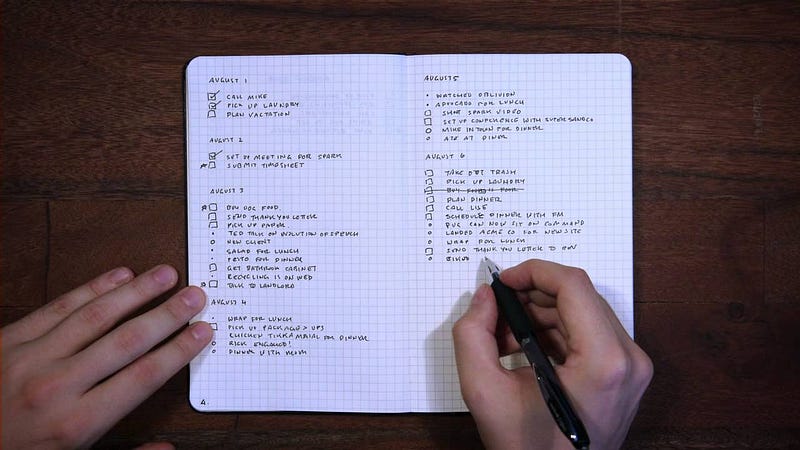 AUGUST 1
CALL MIKE
PICK UP LAUNDRY
PLAN VACTATION
AUGUST 2
SET UP MEETING FOR SPARK
SUBMIT TIMESHEET
AUGUST 3
BUY DOG FOOD
SEND THANK YOU LETTER
PICK UP PAPER
TED TALK ON EVOLUTION OF SPEECH
NEW CLIENT
SALAD FOR LUNCH
PESTO FOR DINNER
GET BATHROOM CABINET
RECYCLING IS ON WED
TALK TO LANDLORD
AUGUST 4
WRAP FOR LUNCH
PICK UP PACKAGE > UPS
CHICKEN TIKKA FOR DINNER
RICK ENGAGED!
DINNER WITH MOM
4
AUGUST 5
WATCHED OBLIVION
ADVOCADO FOR LUNCH
SHOOT SPARK VIDEO
SET UP CONFERENCE WITH
MIKE IN TOWN FOR DINNER
ATE AT DINER
AUGUST 6
TAKE OUT TRASH
PICK UP LAUNDRY
BUY
PLAN DINNER
CALL LISE
SCHEDULE DINNER WITH FM
PUG CAN NOW SIT ON COMMAND
LANDED ACME CO FOR NEW SITE
WRAP FOR LUNCH
SEND THANK YOU LETTER TO RON